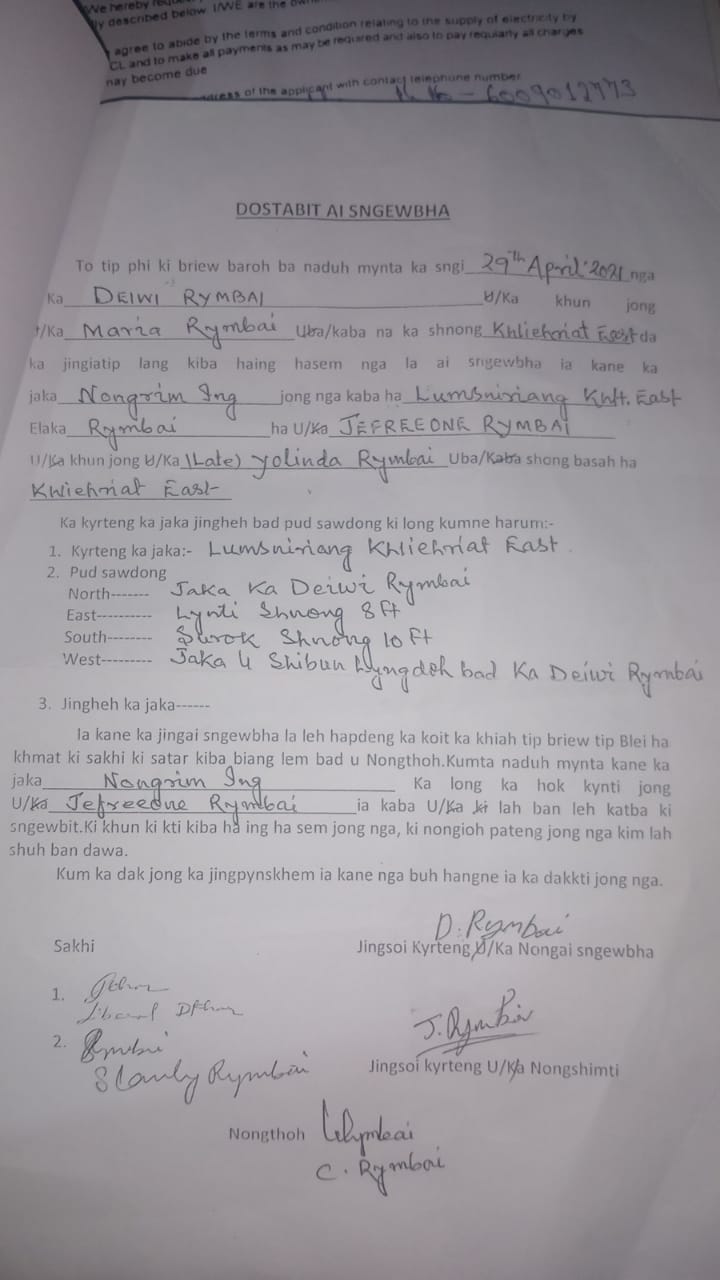 We hereby
ly described below. I/WE are the
agree to abide by the terms and condition relating to the supply of electricity by
CL and to make all payments as may be required and also to pay regularly all charges
nay become due
dress of the applicant with contact telephone number
6009012773
DOSTABIT AI SNGEWBHA
To tip phi ki briew baroh ba naduh mynta ka sngi 29th April' 2021 nga
Ka DEIWI RYMBAI U/Ka khun jong
/Ka Maria Rymbai Uba/kaba na ka shnong Khliehriat East da
ka jingiatip lang kiba haing hasem nga la ai sngewbha ia kane ka
jaka Nongrim Ing jong nga kaba ha Lumsniriang Khlt. East
Elaka Rymbai ha U/Ka JEFREEONE RYMBAI
U/Ka khun jong U/Ka (Late) Yolinda Rymbai Uba/Kaba shong basah ha
Khliehriat East
Ka kyrteng ka jaka jingheh bad pud sawdong ki long kumne harum:-
1. Kyrteng ka jaka:- Lumsniriang Khliehriat East
2. Pud sawdong
North------- Jaka Ka Deiwi Rymbai
East---------- Lynti Shnong 8 ft
South-------- Surok Shnong 10 Ft
West--------- Jaka U Shibun Lyngdoh bad Ka Deiwi Rymbai
3. Jingheh ka jaka------
Ia kane ka jingai sngewbha la leh hapdeng ka koit ka khiah tip briew tip Blei ha
khmat ki sakhi ki satar kiba biang lem bad u Nongthoh.Kumta naduh mynta kane ka
jaka Nongrim Ing Ka long ka hok kynti jong
U/Ka Jefreeone Rymbai ia kaba U/Ka ki lah ban leh katba ki
sngewbit.Ki khun ki kti kiba ha ing ha sem jong nga, ki nongioh pateng jong nga kim lah
shuh ban dawa.
Kum ka dak jong ka jingpynskhem ia kane nga buh hangne ia ka dakkti jong nga.
D. Rymbai
Sakhi Jingsoi Kyrteng U/Ka Nongai sngewbha
1.
2.
J. Rymbai
Stanly Rymbai Jingsoi kyrteng U/Ka Nongshimti
Nongthoh
C. Rymbai